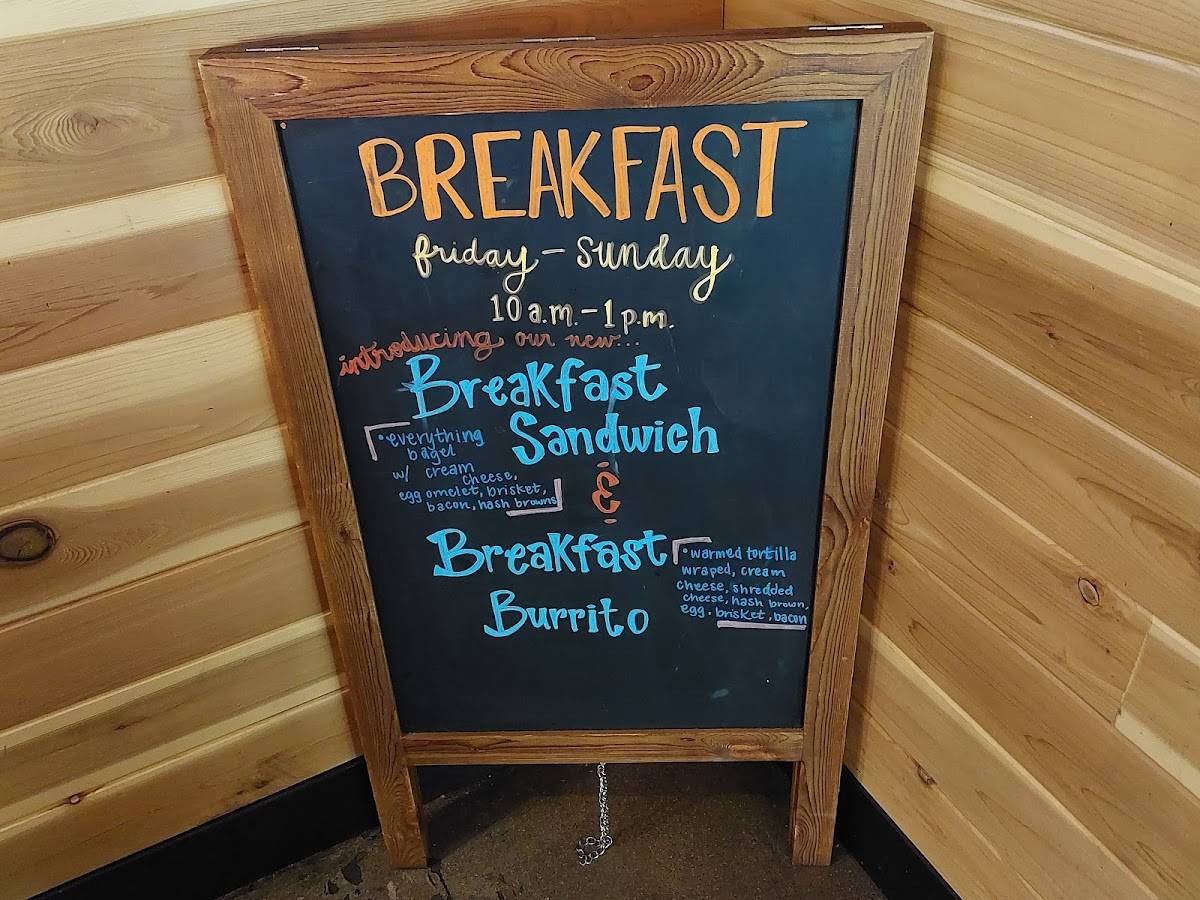 BREAKFAST
friday - Sunday
10 a.m. - 1 p.m.
introducing our new...
Breakfast
Sandwich
• everything
bagel
w/ cream
cheese,
egg omelet, brisket,
bacon, hash browns
&
Breakfast
Burrito
• warmed tortilla
wraped, cream
cheese, shredded
cheese, hash brown,
egg. brisket, bacon